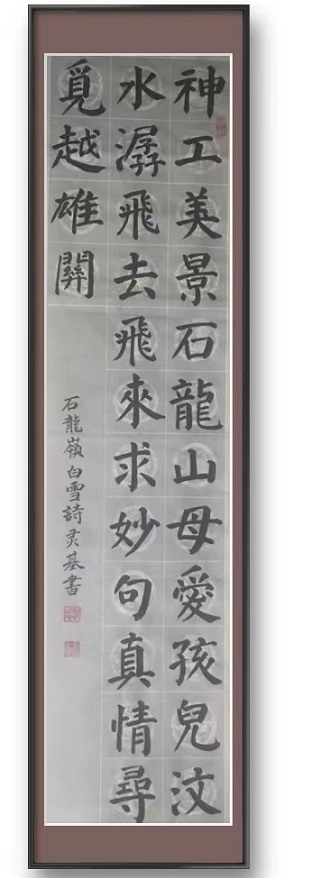 神工美景石龍山母愛孩兒汶
水潺飛去飛來求妙句真情尋
覓越雄關
石龍嶺白雪詩灵基書